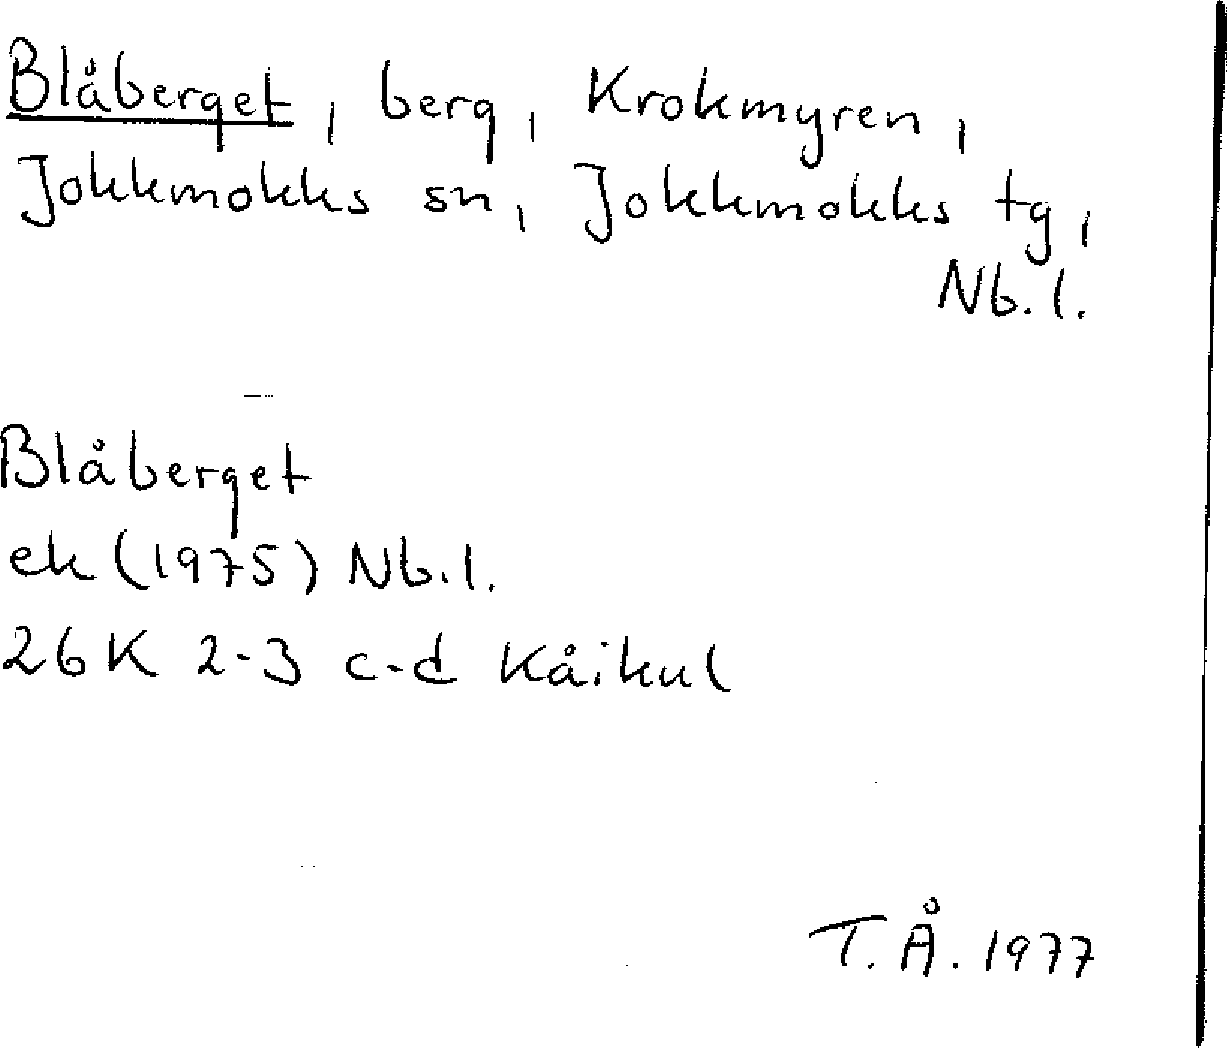 Blåberget, berg, Krokmyren,
Jokkmokks sn, Jokkmokks tg,
Nb.l.
Blåberget
ek (1975) Nb.l.
26K 2-3 c-d Kåikul
T.Å. 1977